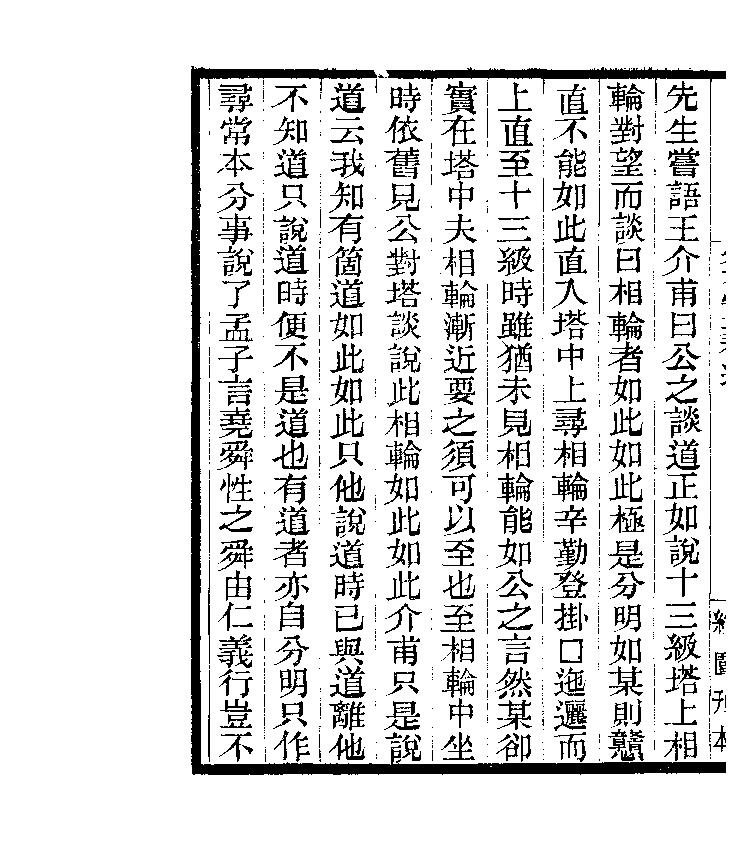 先生嘗語王介甫曰公之談道正如說十三級塔上相
輪對望而談曰相輪者如此如此極是分明如某則戇
直不能如此直入塔中上尋相輪辛勤登掛□迤邐而
上直至十三級時雖猶未見相輪能如公之言然某卻
實在塔中去相輪漸近要之須可以至也至相輪中坐
時依舊見公對塔談說此相輪如此如此介甫只是說
道云我知有箇道如此如此只他說道時已與道離他
不知道只說道時便不是道也有道者亦自分明只作
尋常本分事說了孟子言堯舜性之舜由仁義行豈不
刊本